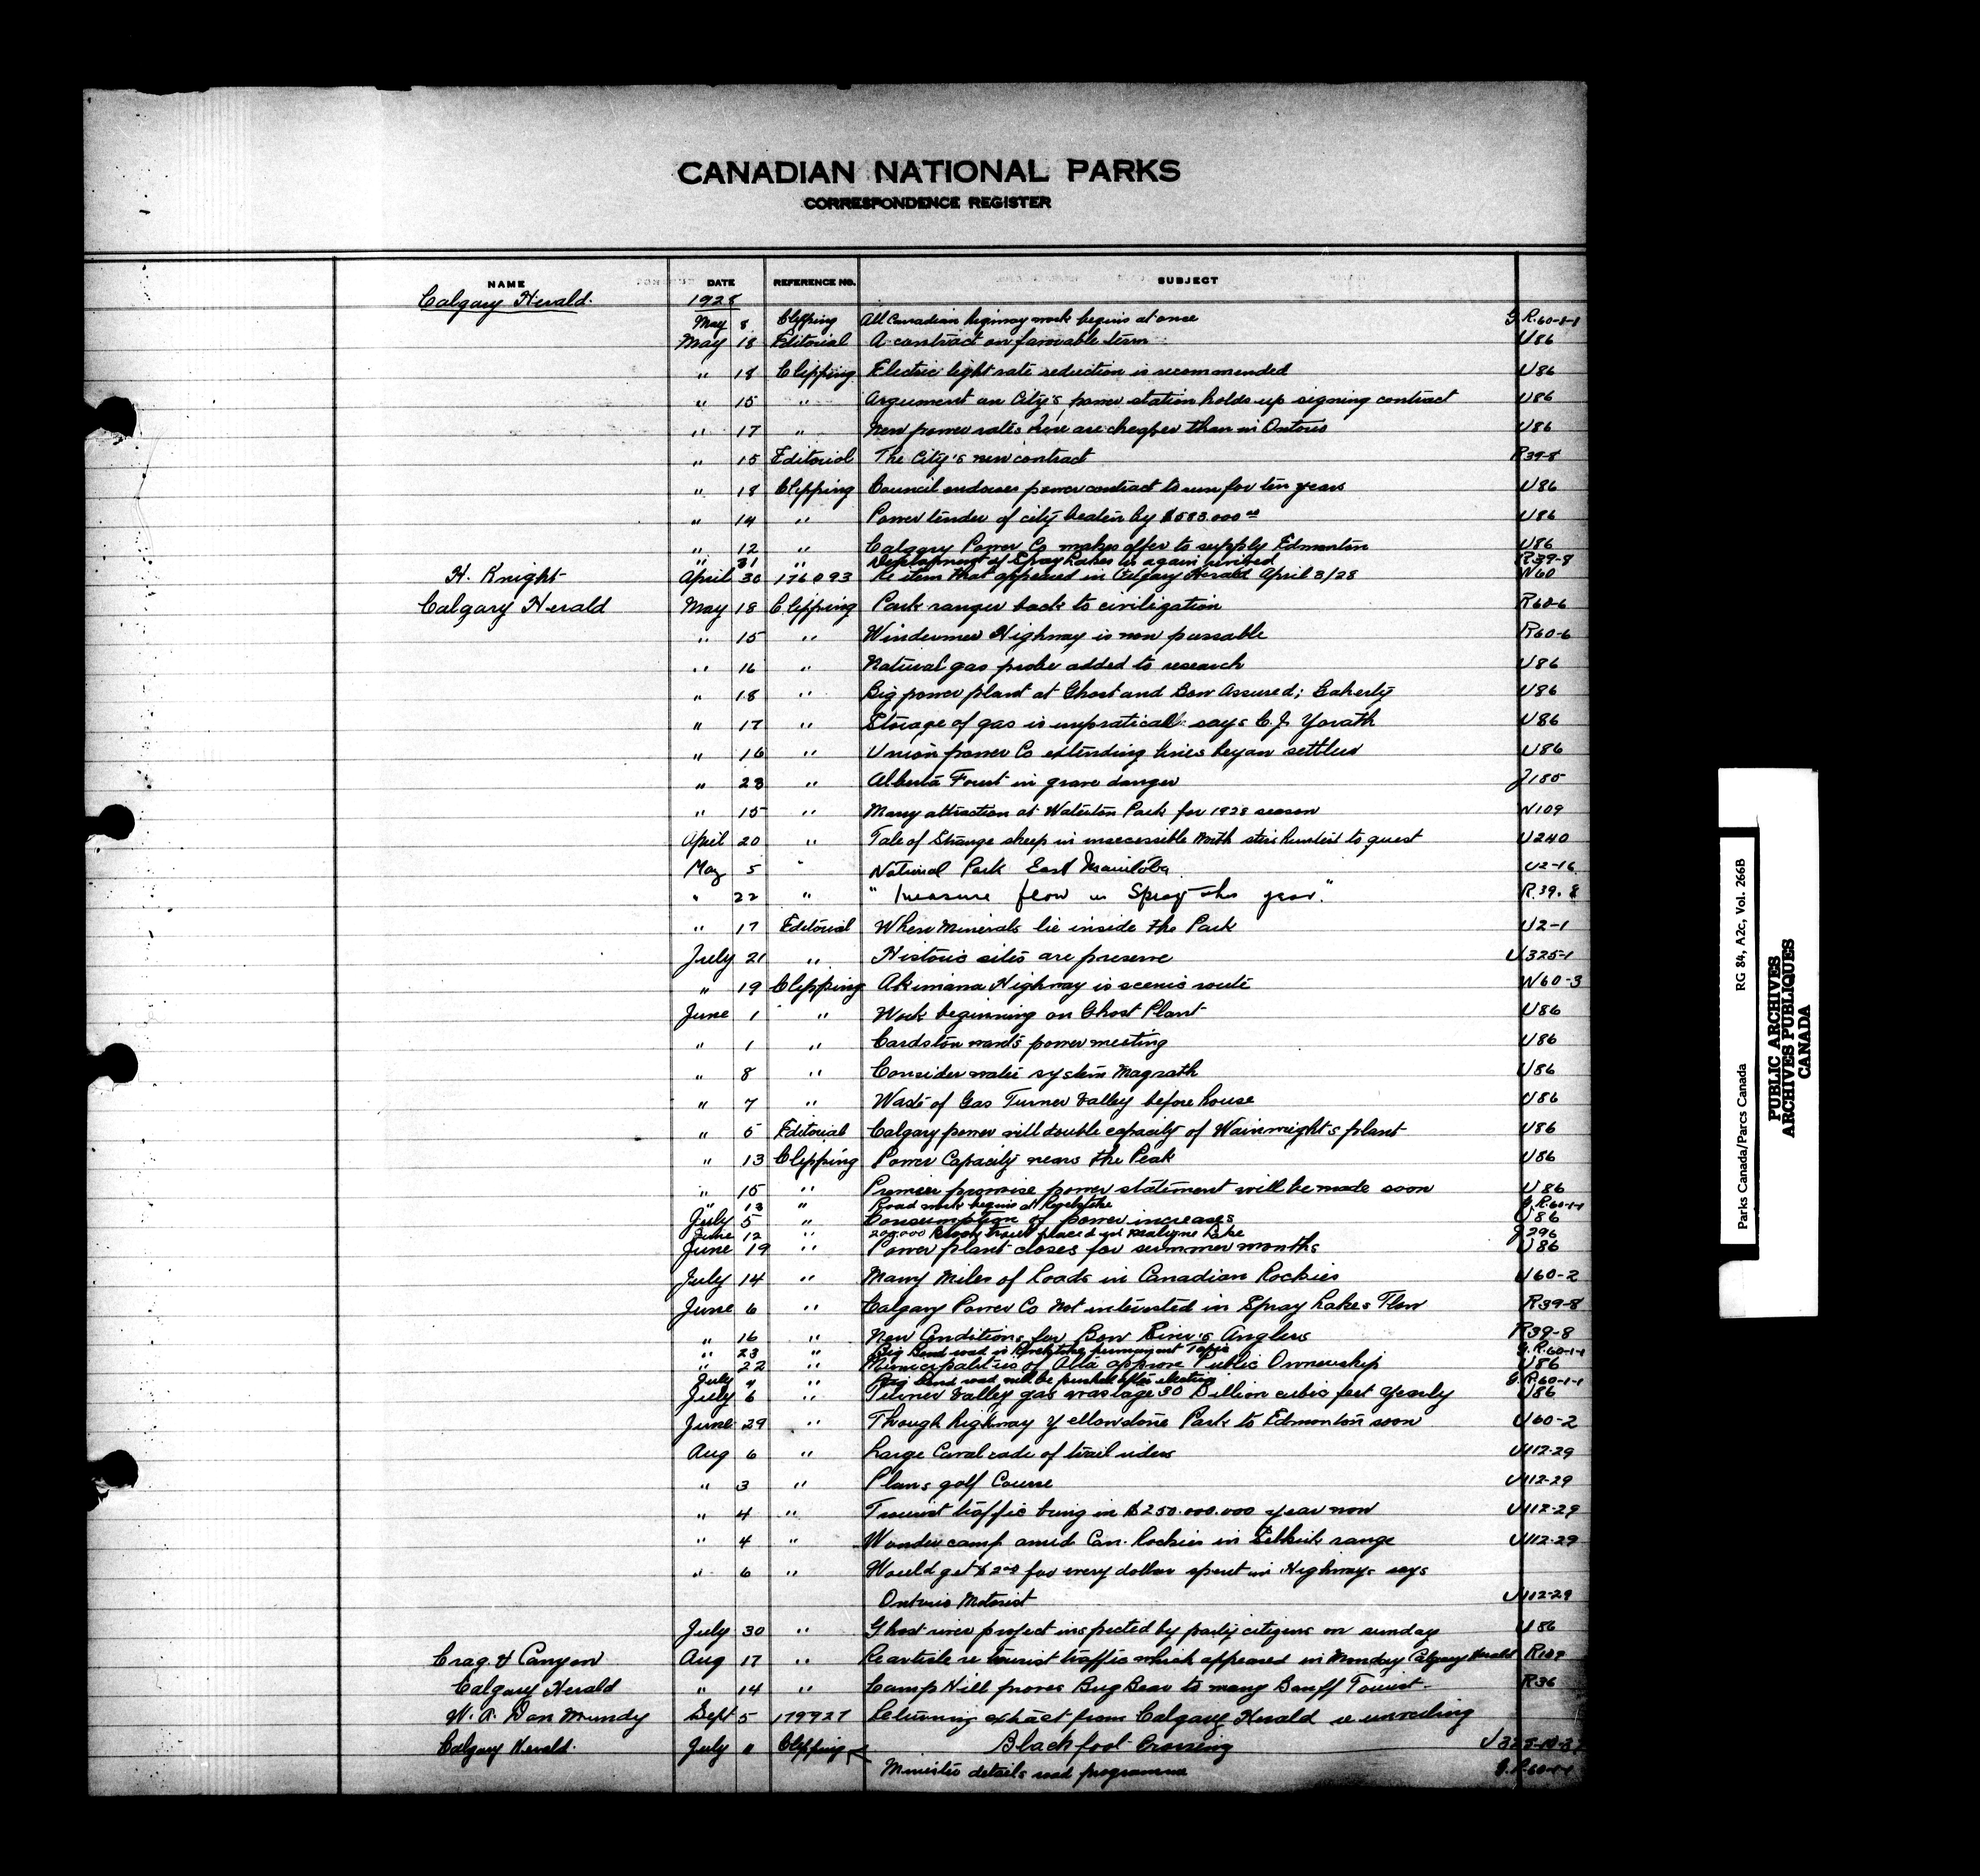 CANADIAN NATIONAL PARKS
CORRESPONDENCE REGISTER
NAME DATE REFERENCE NO. SUBJECT
Calgary Herald. 1928
May 8 Clipping All Canadian highway work begins at once G.R.60-1-1
May 18 Editorial A contract on favorable term U86
" 18 Clipping Electric light rate reduction is recommended U86
" 15 " Argument on City's power station holds up signing contract U86
" 17 " New power rates here are cheaper than in Ontario U86
" 15 Editorial The City's new contract R39-8
" 18 Clipping Council endorses power contract to run for ten years U86
" 14 " Power tender of city beaten by $583.000 U86
" 12 " Calgary Power Co makes offer to supply Edmonton U86
" 31 " Development of Spray Lakes is again revived R39-8
H. Knight April 30 176093 Re item that appeared in Calgary Herald April 3/28 W60
Calgary Herald May 18 Clipping Park ranger back to civilization R60-6
" 15 " Windermer Highway is now passable R60-6
" 16 " Natural gas probe added to research U86
" 18 " Big power plant at Ghost and Bow Assured; Gaherty U86
" 17 " Storage of gas is unpratical says C.J. Yorath U86
" 16 " Union power Co extending lines beyan settled U86
" 23 " Alberta Forest in grave danger J185
" 15 " Many attraction at Waterton Park for 1928 season W109
April 20 " Tale of Strange sheep in inaccessible North stirs hunters to quest U240
May 5 " National Park East Manitoba U2-16
" 22 " "Measure flow in Spray this year." R.39.8
" 17 Editorial When Minerals lie inside the Park U2-1
July 21 " Historic sites are preserve U325-1
" 19 Clipping Akimana Highway is scenic route W60-3
June 1 " Work beginning on Ghost Plant U86
" 1 " Cardston wants power meeting U86
" 8 " Consider water system Magrath U86
" 7 " Waste of Gas Turner Valley before house U86
" 5 Editorial Calgary power will double capacity of Wainwright's plant U86
" 13 Clipping Power Capacity nears the Peak U86
" 15 " Premier promise power statement will be made soon U86
" 13 " Road work begins at Revelstoke G.R.60-1-1
July 5 " Consumption of power increases U86
June 12 " 200,000 Brook trout placed in Maligne Lake J296
June 19 " Power plant closes for summer months U86
July 14 " Many Miles of Roads in Canadian Rockies U60-2
June 6 " Calgary Power Co Not interested in Spray Lakes Flow R39-8
" 16 " New Conditions for Bow River's Anglers R39-8
" 23 " Big Bend road is Revelstoke permanent Topic G.R.60-1-1
" 22 " Municipalities of Alta approve Public Ownership U86
July 4 " Big Bend road will be pushed after election G.R.60-1-1
July 6 " Turner Valley gas wastage 30 Billion cubic feet yearly U86
June 29 " Though highway Yellowstone Park to Edmonton soon U60-2
Aug 6 " Large Cavalcade of trail riders U112-29
" 3 " Plans golf Course U112-29
" 4 " Tourist traffic bring in $250.000.000 year now U112-29
" 4 " Wonder camp amid Can. Rockies in Selkirk range U112-29
" 6 " Would get $2.00 for every dollar spent in Highways says
Ontario Motorist U112-29
July 30 " Ghost river project inspected by party citizens on sunday U86
Crag & Canyon Aug 17 " Re article re tourist traffic which appeared in Monday Calgary Herald R109
Calgary Herald " 14 " Camp Hill proves Bug Bear to many Banff Tourist R36
W. P. Don Mundy Sept 5 179927 Returning extract from Calgary Herald re unveiling
Calgary Herald. July " Clipping Blackfoot Crossing
Minister details road programme G.R.60-1-1
Parks Canada/Parcs Canada RG 84, A2c, Vol. 266B
PUBLIC ARCHIVES
ARCHIVES PUBLIQUES
CANADA